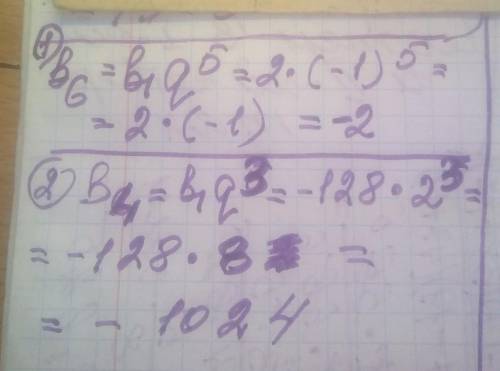 1) b₆ = b₁q⁵ = 2·(-1)⁵ =
= 2·(-1) = -2
2) b₄ = b₁q³ = -128·2³ =
= -128·8 =
= - 1024